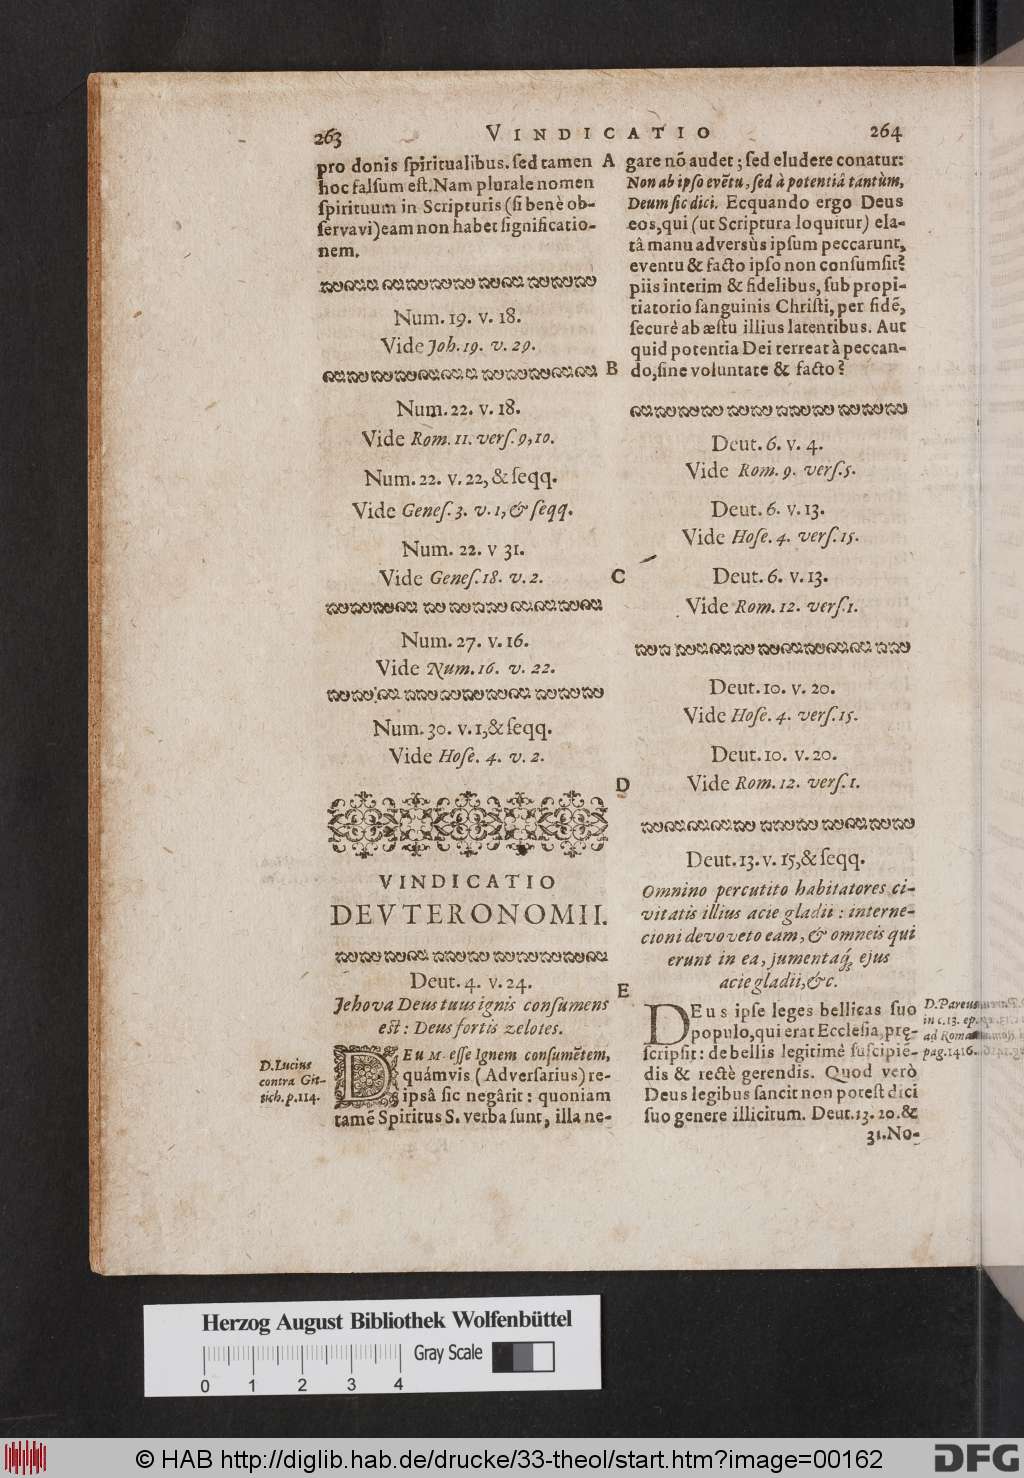 263
VINDICATIO
264
pro donis ſpiritualibus. ſed tamen
hoc falſum eſt. Nam plurale nomen
ſpirituum in Scripturis (ſi benè ob-
ſervavi) eam non habet ſignificatio-
nem.
Num. 19. v. 18.
Vide Joh. 19. v. 29.
Num. 22. v. 18.
Vide Rom. 11. verſ. 9, 10.
Num. 22. v. 22, & ſeqq.
Vide Geneſ. 3. v. 1, & ſeqq.
Num. 22. v 31.
Vide Geneſ. 18. v. 2.
Num. 27. v. 16.
Vide Num. 16. v. 22.
Num. 30. v. 1, & ſeqq.
Vide Hoſe. 4. v. 2.
VINDICATIO
DEVTERONOMII.
Deut. 4. v. 24.
Jehova Deus tuus ignis conſumens
eſt: Deus fortis zelotes.
D. Lucius
contra Git-
tich. p. 114.
DEUM eſſe Ignem conſumẽtem,
quámvis (Adverſarius) re-
ipsâ ſic negârit: quoniam
tamẽ Spiritus S. verba ſunt, illa ne-
A
B
C
D
E
gare nõ audet; ſed eludere conatur:
Non ab ipſo evẽtu, ſed à potentiâ tantùm,
Deum ſic dici. Ecquando ergo Deus
eos, qui (ut Scriptura loquitur) ela-
tâ manu adversùs ipſum peccarunt,
eventu & facto ipſo non conſumſit?
piis interim & fidelibus, ſub propi-
tiatorio ſanguinis Chriſti, per fidẽ,
ſecurè ab æſtu illius latentibus. Aut
quid potentia Dei terreat à peccan-
do, ſine voluntate & facto?
Deut. 6. v. 4.
Vide Rom. 9. verſ. 5.
Deut. 6. v. 13.
Vide Hoſe. 4. verſ. 15.
Deut. 6. v. 13.
Vide Rom. 12. verſ. 1.
Deut. 10. v. 20.
Vide Hoſe. 4. verſ. 15.
Deut. 10. v. 20.
Vide Rom. 12. verſ. 1.
Deut. 13. v. 15, & ſeqq.
Omnino percutito habitatores ci-
vitatis illius acie gladii: interne-
cioni devoveto eam, & omneis qui
erunt in ea, jumentaq́; ejus
acie gladii, &c.
DEus ipſe leges bellicas ſuo
populo, qui erat Eccleſia, prę-
ſcripſit: de bellis legitimè ſuſcipiẽ-
dis & rectè gerendis. Quod verò
Deus legibus ſancit non poteſt dici
ſuo genere illicitum. Deut. 13. 20. &
31. No-
D. Pareus
in c. 13. ep.
ad Roma
pag. 1416.
Herzog August Bibliothek Wolfenbüttel
Gray Scale
0 1 2 3 4
© HAB http://diglib.hab.de/drucke/33-theol/start.htm?image=00162
DFG